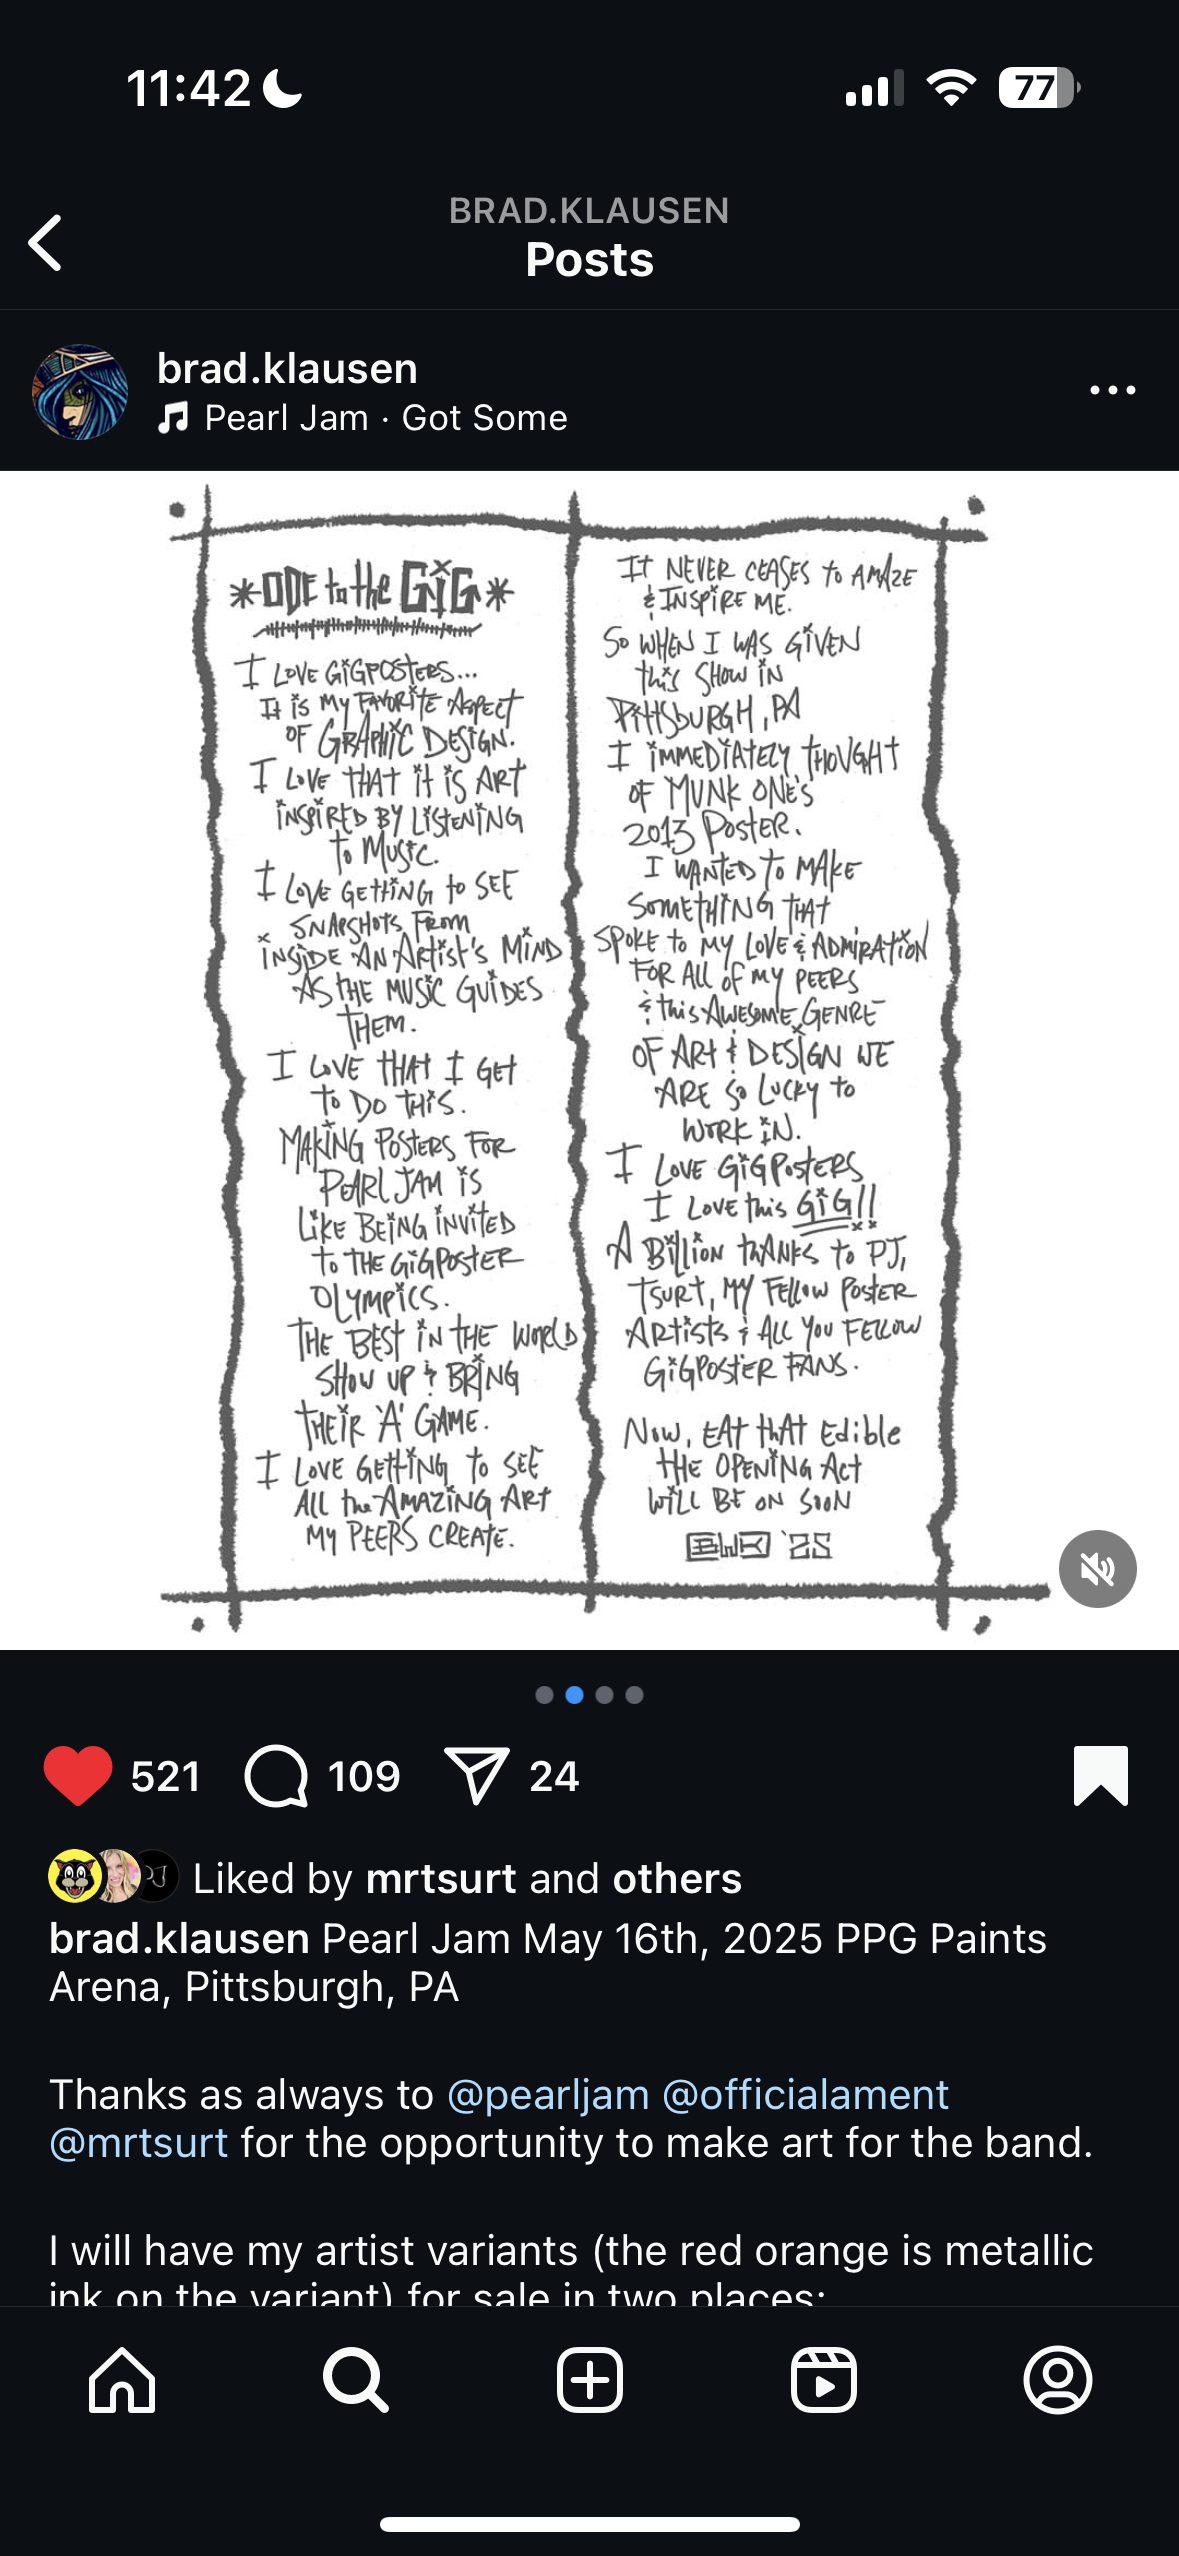 11:42
77
BRAD.KLAUSEN
Posts
brad.klausen
Pearl Jam · Got Some
*ODE to the GIG*
I LOVE GIGPOSTERS...
It is MY FAVORITE ASPECT
OF GRAPHIC DESIGN.
I LOVE THAT it is ART
INSPIRED BY LISTENING
To MUSIC.
I LOVE GETTING to SEE
SNAPSHOTS FROM
INSIDE AN ARTIST'S MIND
AS THE MUSIC GUIDES
THEM.
I LOVE THAT I GET
To DO THIS.
MAKING POSTERS FOR
PEARL JAM IS
LIKE BEING INVITED
TO THE GIGPOSTER
OLYMPICS.
THE BEST IN THE WORLD
SHOW UP & BRING
THEIR 'A' GAME.
I LOVE GETTING TO SEE
ALL the AMAZING ART
MY PEERS CREATE.
It NEVER CEASES to AMAZE
& INSPIRE ME.
So WHEN I WAS GIVEN
this SHOW IN
PITTSBURGH, PA
I IMMEDIATELY THOUGHT
OF MUNK ONE'S
2013 POSTER.
I WANTED To MAKE
SOMETHING THAT
SPOKE to MY LOVE & ADMIRATION
FOR ALL OF MY PEERS
& this AWESOME GENRE
OF ART & DESIGN WE
ARE SO LUCKY to
WORK IN.
I LOVE GIGPOSTERS
I LOVE this GIG!!
A BILLION THANKS to PJ,
TSURT, MY FELLOW POSTER
ARTISTS & ALL YOU FELLOW
GIGPOSTER FANS.
NOW, EAT THAT EDIBLE
THE OPENING ACT
WILL BE ON SOON
BWK '25
521
109
24
Liked by mrtsurt and others
brad.klausen Pearl Jam May 16th, 2025 PPG Paints
Arena, Pittsburgh, PA
Thanks as always to @pearljam @officialament
@mrtsurt for the opportunity to make art for the band.
I will have my artist variants (the red orange is metallic
ink on the variant) for sale in two places: